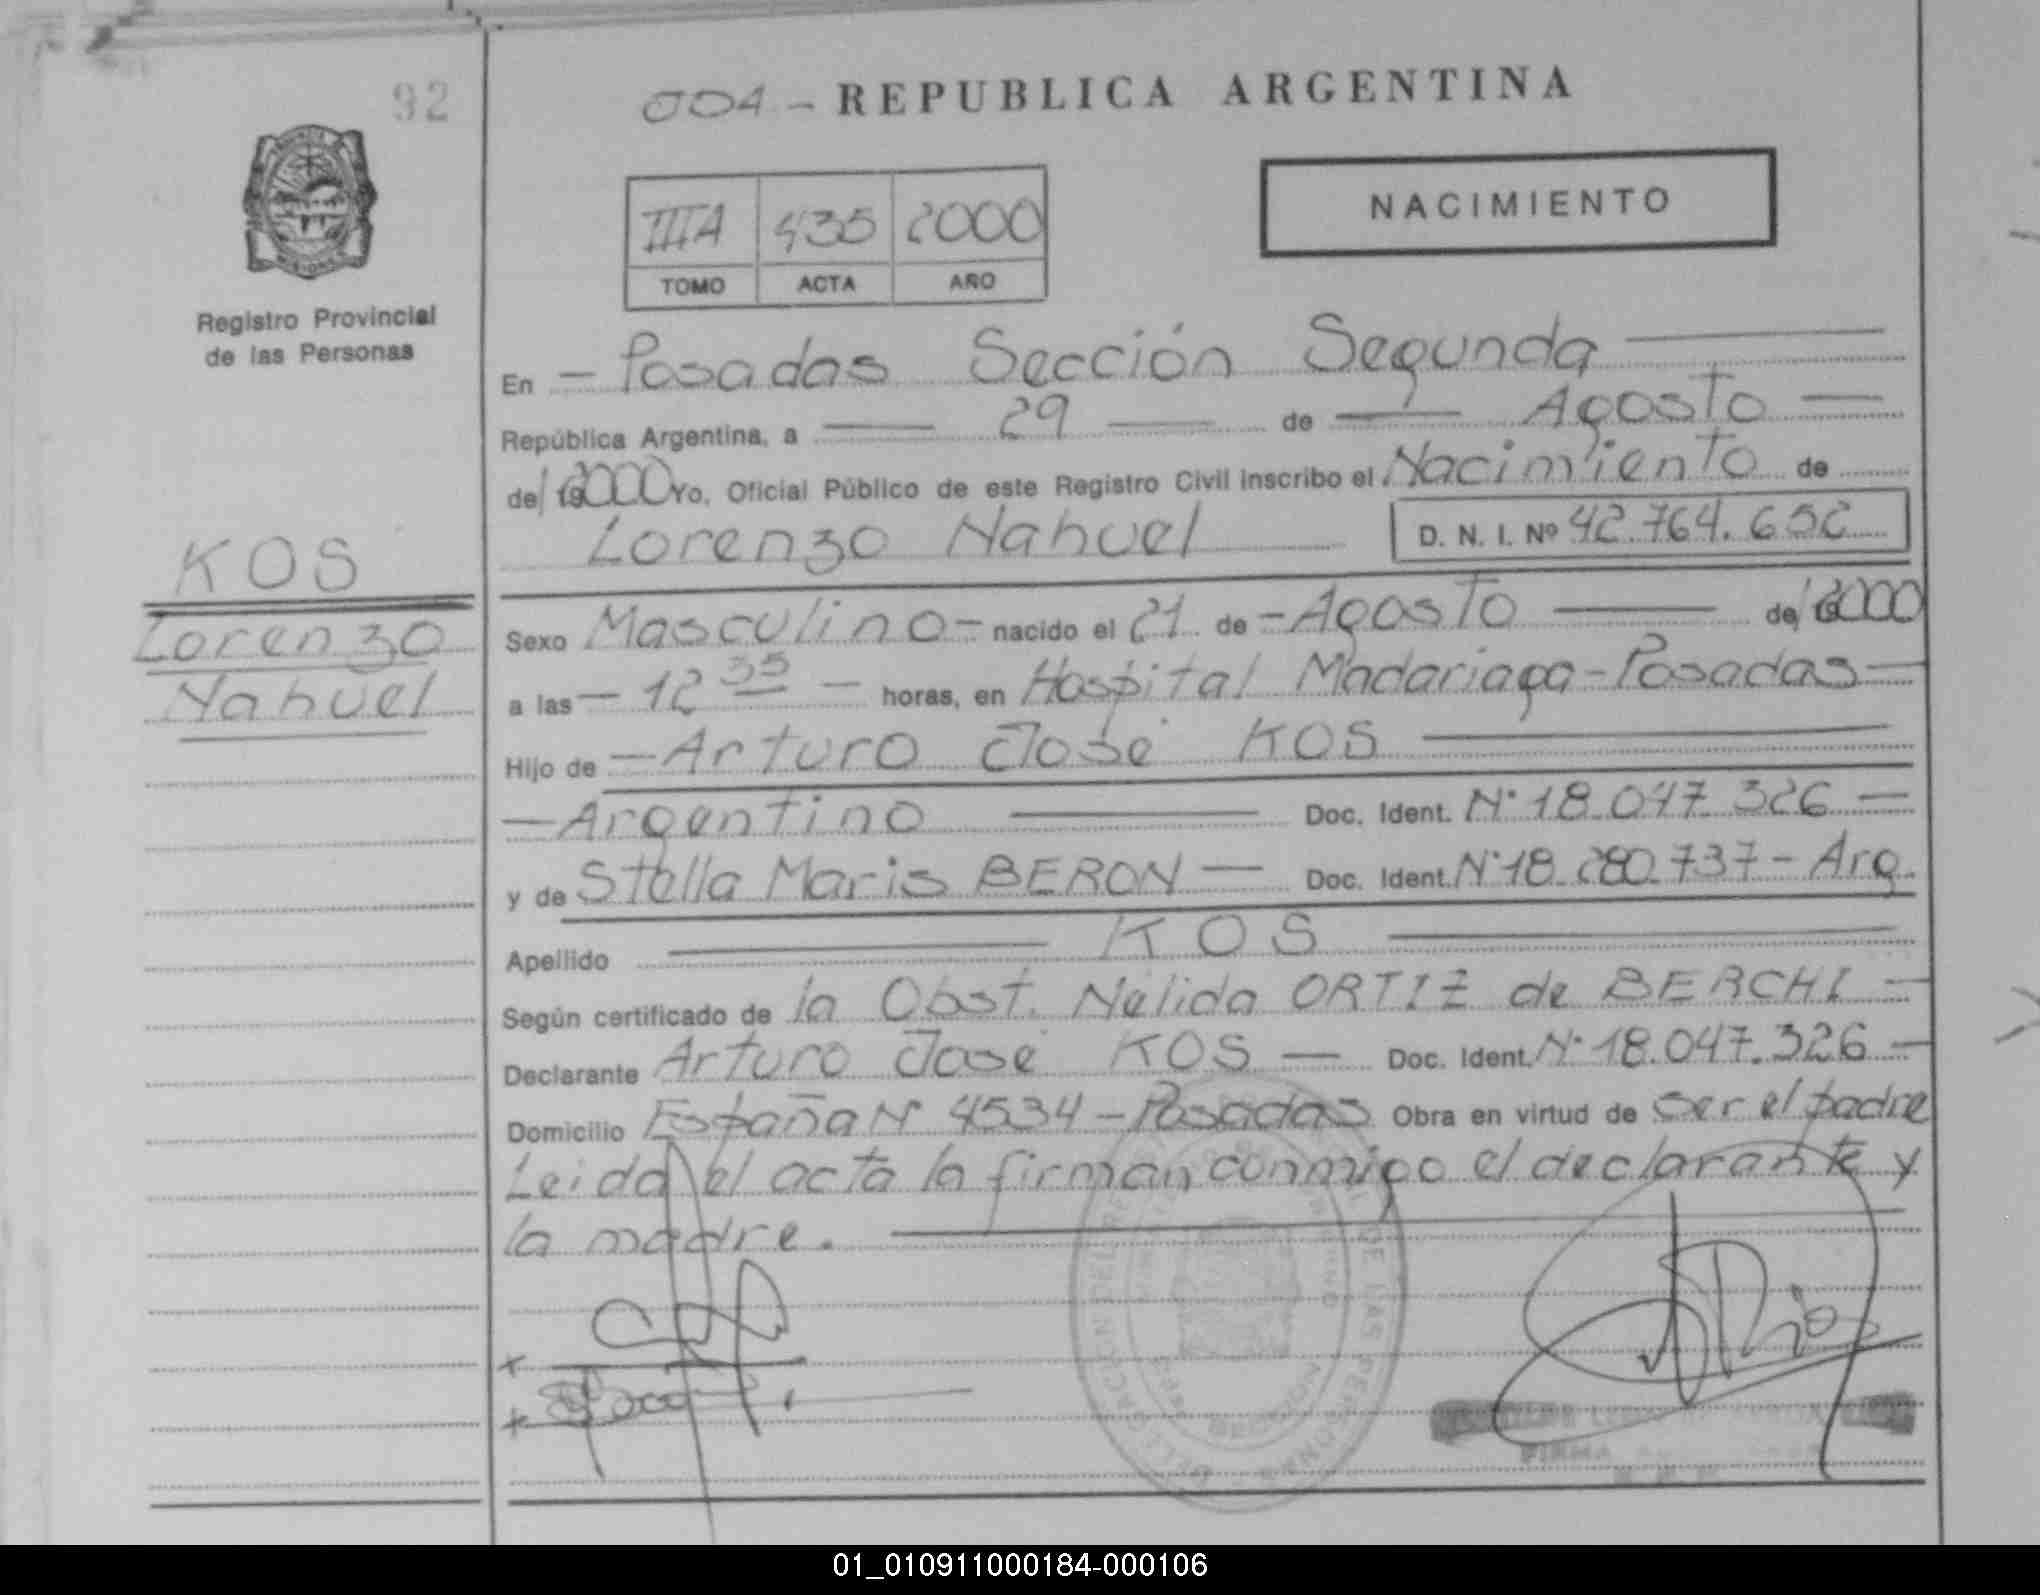 92
004 - REPUBLICA ARGENTINA
NACIMIENTO
IIIA 435 2000
TOMO ACTA AÑO
MISIONES
Registro Provincial
de las Personas
En - Posadas Sección Segunda
República Argentina, a 29 de Agosto
de 2000 Yo, Oficial Público de este Registro Civil inscribo el Nacimiento de
Lorenzo Nahuel D. N. I. Nº 42.764.652
KOS
Lorenzo
Nahuel
Sexo Masculino - nacido el 21 de - Agosto de 2000
a las - 12 35 - horas, en Hospital Madariaga - Posadas -
Hijo de - Arturo José KOS
- Argentino Doc. Ident. N° 18.047.326 -
y de Stella Maris BERON - Doc. Ident. N° 18.280.737 - Arg.
Apellido KOS
Según certificado de la Obst. Nélida ORTIZ de BERCHI -
Declarante Arturo José KOS - Doc. Ident. N° 18.047.326 -
Domicilio España N° 4534 - Posadas Obra en virtud de ser el padre
Leida el acta la firman conmigo el declarante y
la madre.
01_010911000184-000106